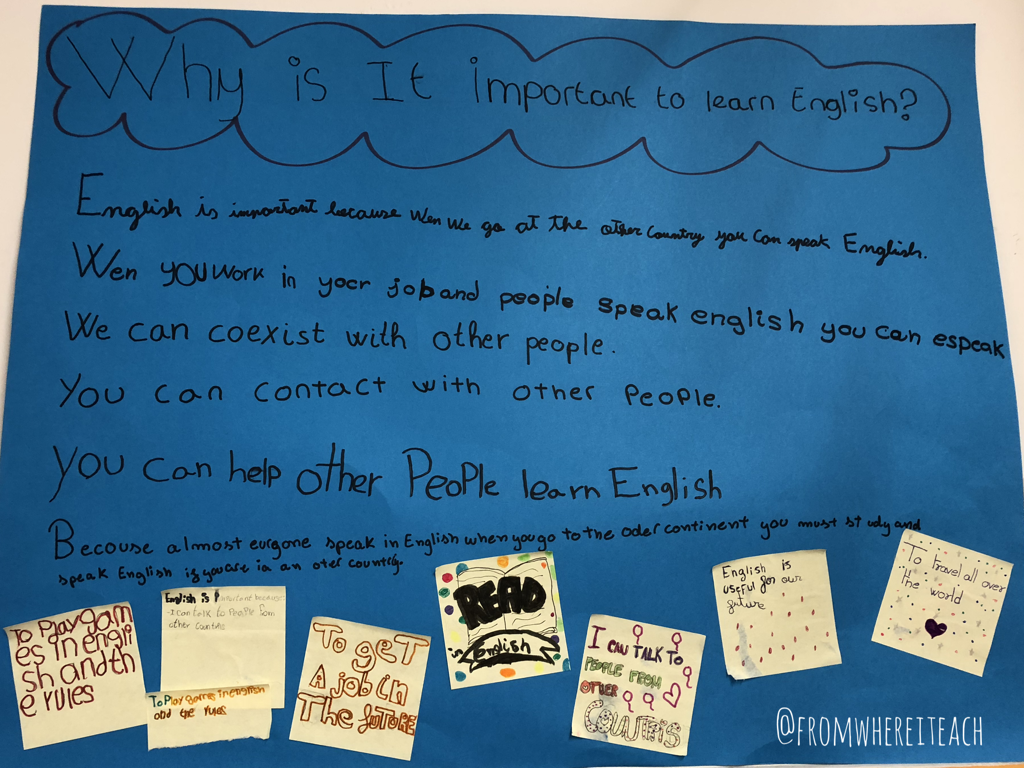 Why is It important to learn English?
English is important because Wen We go at the other Country you Can speak English.
Wen you work in yoer job and people speak english you can espeak
We can coexist with other people.
You can contact with other people.
you can help other People learn English
Becouse almost eurgone speak in English when you go to the oder continent you must study and
speak English if you are in an oter country.
To Play gam
es in engli
sh and th
e rules
English is Important because
I can talk to People from
other Countris
To Play games in english
and the rules
To get
A job in
The future
READ
in english
I can talk to
people from
other
Countris
English is
useful for our
future
To travel all over
the world
@fromwhereiteach